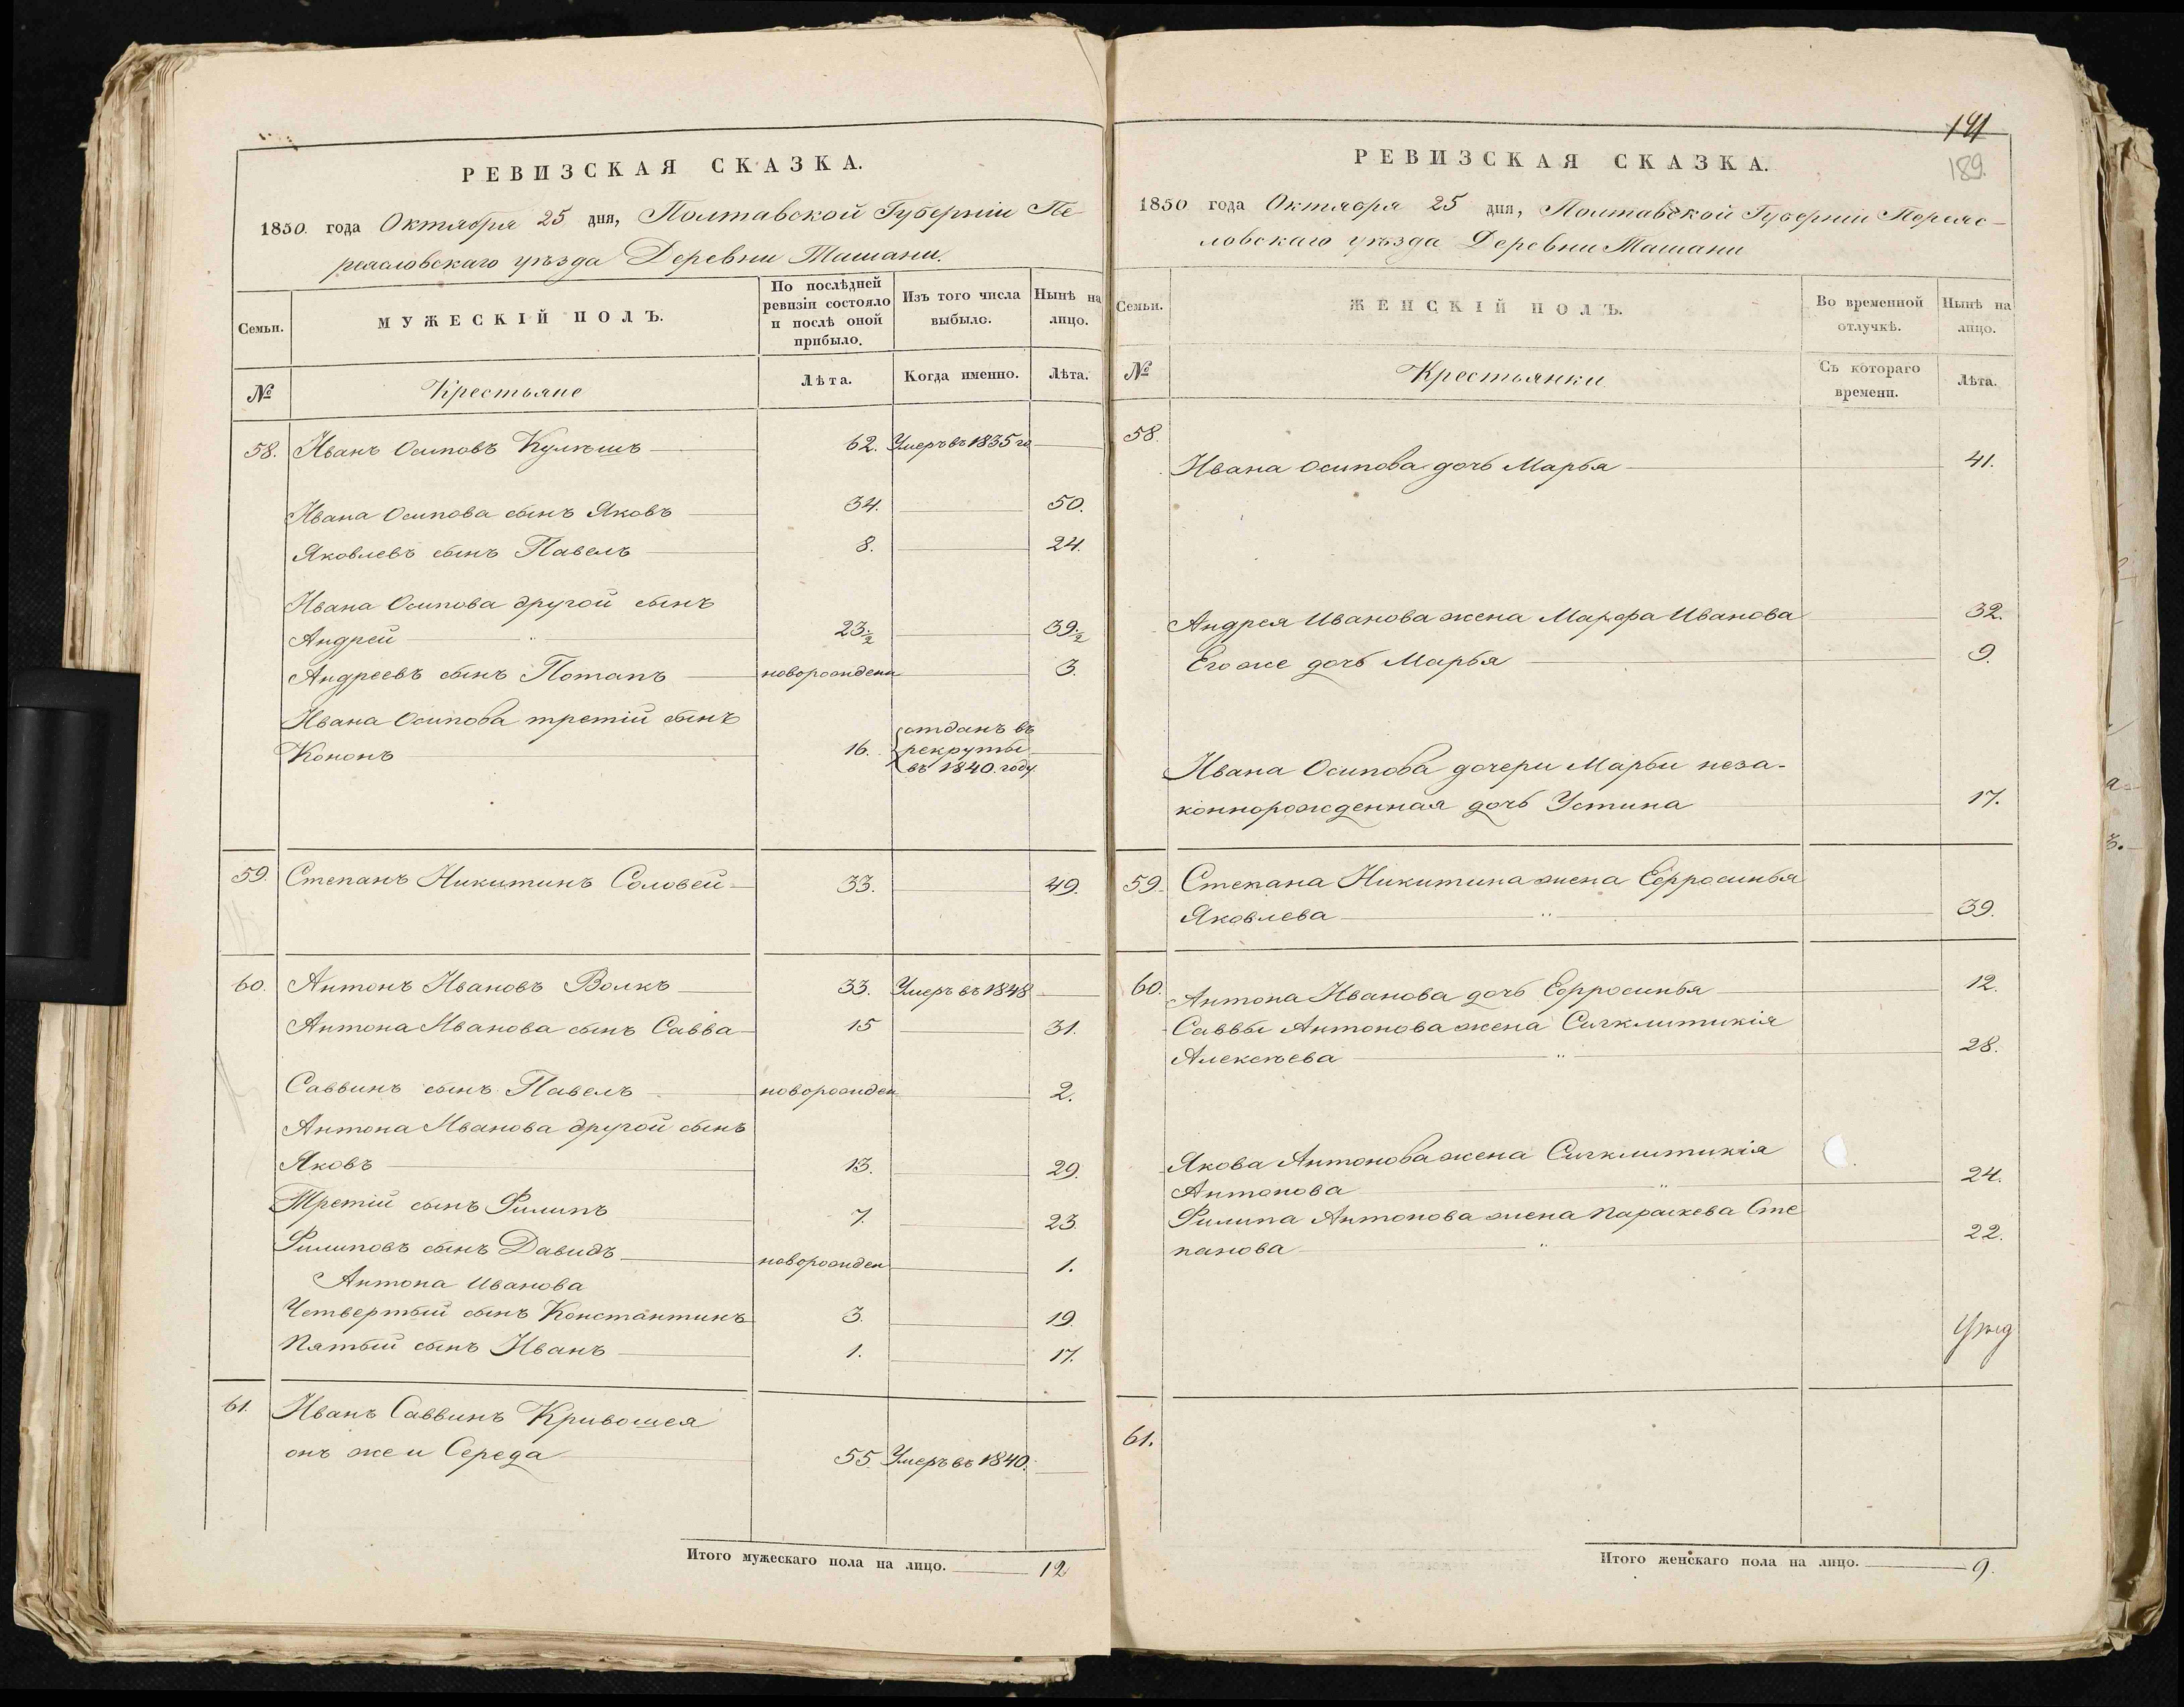 РЕВИЗСКАЯ СКАЗКА.
1850. года Октября 25 дня, Полтавской Губерніи Пе
реясловскаго уѣзда Деревни Ташани.
Семьи.
МУЖЕСКІЙ ПОЛЪ.
По послѣдней
ревизіи состояло
и послѣ оной
прибыло.
Изъ того числа
выбыло.
Нынѣ на
лицо.
№
Крестьяне
Лѣта.
Когда именно.
Лѣта.
58. Иванъ Осиповъ Кулѣшъ 62. Умеръ въ 1835 го
Ивана Осипова сынъ Яковъ 34. 50.
Яковлевъ сынъ Павелъ 8. 24.
Ивана Осипова другой сынъ
Андрей 23½ 39½
Андреевъ сынъ Потапъ новорожденн 3.
Ивана Осипова третій сынъ
Кононъ 16. отданъ въ
рекруты
въ 1840. году
59. Степанъ Никитинъ Соловей 33. 49.
60. Антонъ Ивановъ Волкъ 33. Умеръ въ 1848
Антона Иванова сынъ Савва 15 31.
Саввинъ сынъ Павелъ новорожден 2.
Антона Иванова другой сынъ
Яковъ 13. 29.
Третій сынъ Филипъ 7. 23.
Филиповъ сынъ Давидъ новорожден 1.
Антона Иванова
Четвертый сынъ Константинъ 3. 19.
Пятый сынъ Иванъ 1. 17.
61. Иванъ Саввинъ Кривошея
онъ же и Середа 55 Умеръ въ 1840.
Итого мужескаго пола на лицо. 12
191
189.
РЕВИЗСКАЯ СКАЗКА.
1850 года Октября 25 дня, Полтавской Губерніи Переяс-
ловскаго уѣзда Деревни Ташани
Семьи.
ЖЕНСКІЙ ПОЛЪ.
Во временной
отлучкѣ.
Нынѣ на
лицо.
№
Крестьянки
Съ котораго
времени.
Лѣта.
58.
Ивана Осипова дочь Марья 41.
Андрея Иванова жена Марфа Иванова 32.
Его же дочь Марья 9.
Ивана Осипова дочери Марьи неза-
коннорожденная дочь Устина 17.
59. Степана Никитина жена Ефросинья
Яковлева 39.
60. Антона Иванова дочь Ефросинья 12.
Саввы Антонова жена Сигклитикія
Алексѣева 28.
Якова Антонова жена Сигклитикія
Антонова 24.
Филипа Антонова жена Параскева Сте
панова 22.
61.
Итого женскаго пола на лицо. 9.